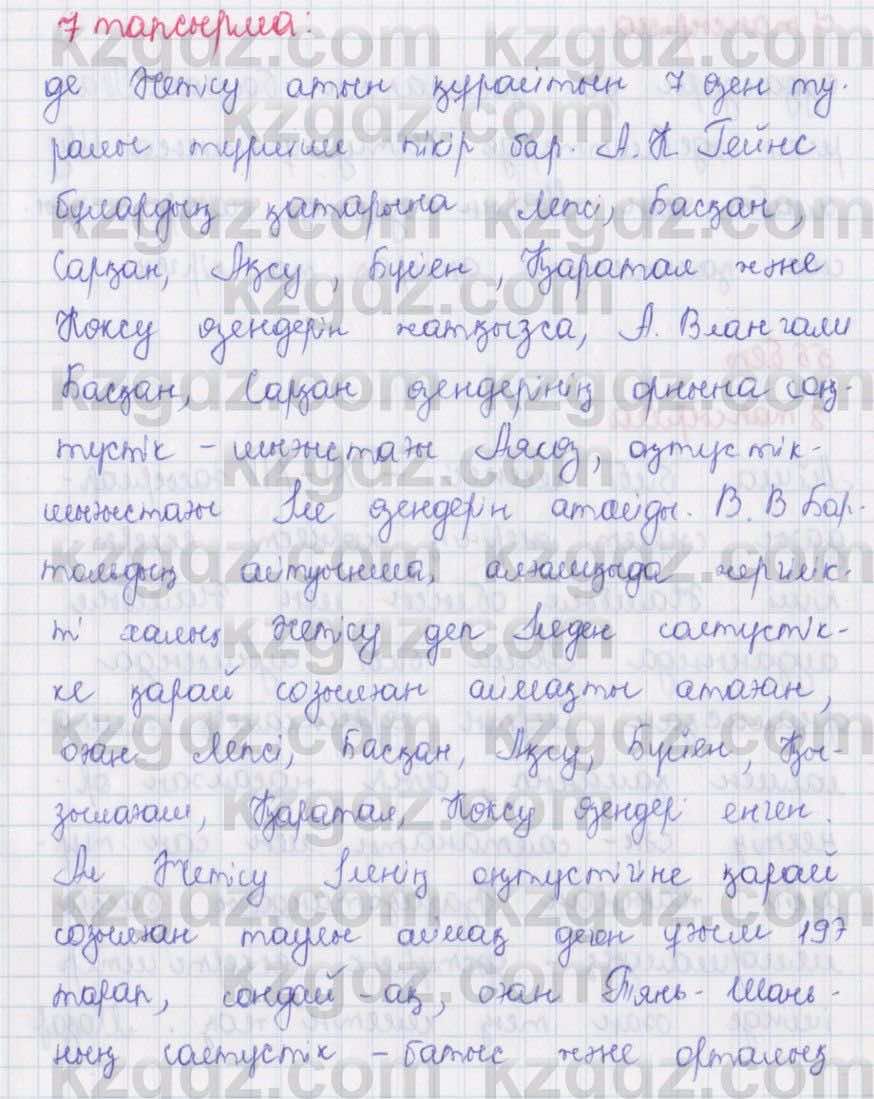 7 тапсырма:
де Жетісу атын құрайтын 7 өзен ту-
ралы түрліше пікір бар. А. К Гейнс
бұлардың қатарына Лепсі, Басқан,
Сарқан, Ақсу, Бүйен, Қаратал және
Көксу өзендерін жатқызса, А. Влангали
Басқан, Сарқан өзендерінің орнына соң-
түстік - шығыстағы Аякөз, оңтүстік-
шығыстағы Іле өзендерін атайды. В. В Бар-
тольдың айтуынша, алғашқыда жергілік-
ті халық Жетісу деп Іледен солтүстік-
ке қарай созылған аймақты атаған,
оған Лепсі, Басқан, Ақсу, Бүйен, Қы-
зылағаш, Қаратал, Көксу өзендері енген.
Ал Жетісу Іленің оңтүстігіне қарай
созылған таулы аймақ деген ұғым 197
тарап, сондай-ақ, оған Тянь-Шань-
ның солтүстік - батыс және орталық
kzgdz.com kzgdz.com